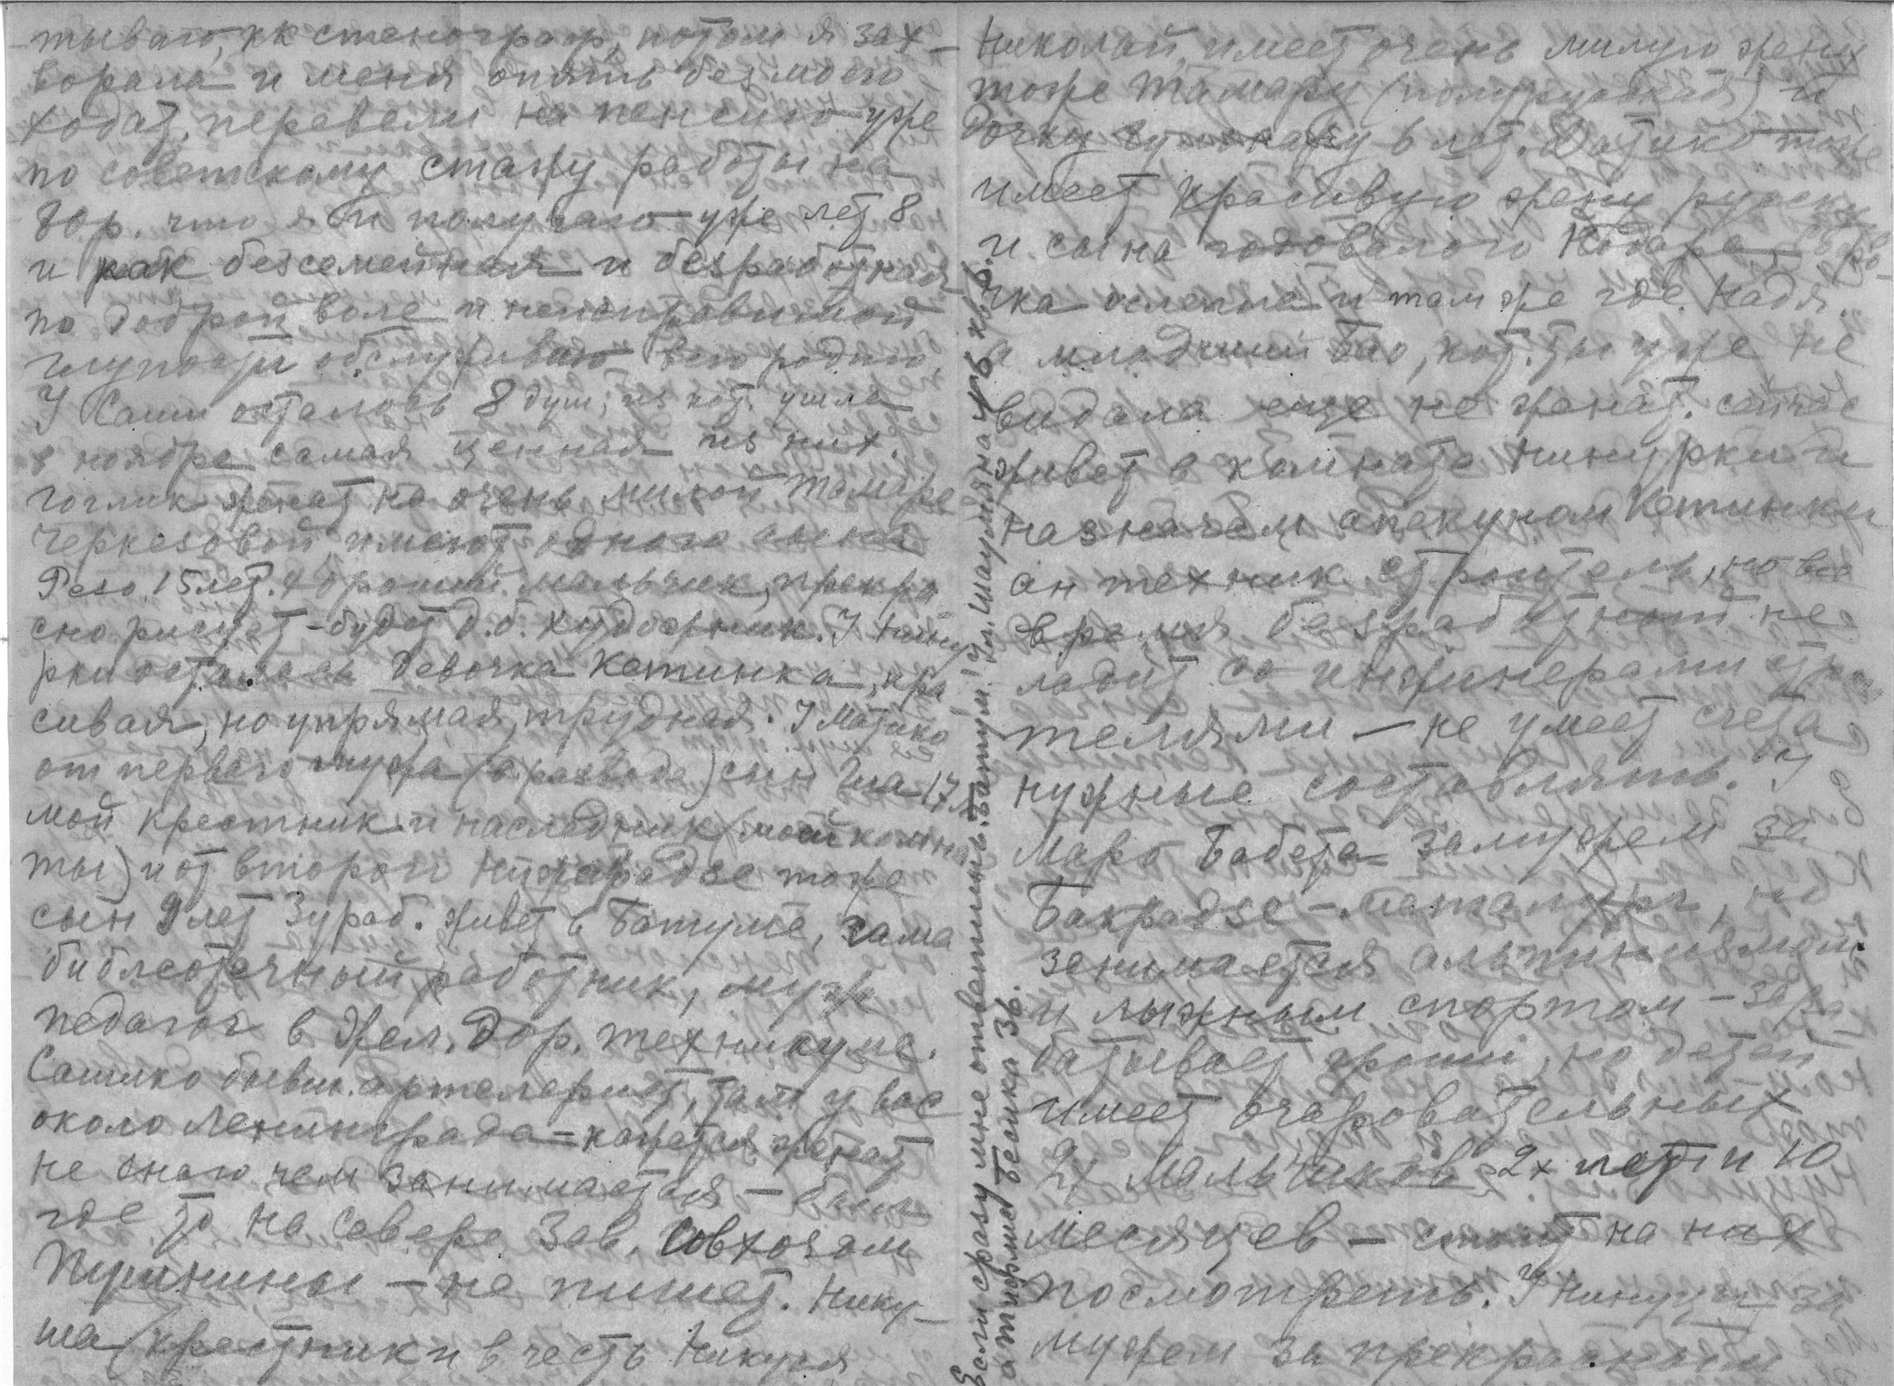 тываю, кк стенограф, потом я зах-
ворала и меня опять без моего
ходат. перевели на пенсию уже
по советскому стажу работы на
дор. что я и получаю уже лет 8
и как безсемейная и безработная
по доброй воле и неисправимой
глупости обслуживаю всю родню.
У Саши осталось 8 душ, из кот. ушла
в ноябре самая ценная из них.
Гоглик женат на очень милой Тамаре
Черкезовой, имеют одного сына
Резо 15 лет. Хороший мальчик, прекра
сно рисует - будет д.б. художник. У Нину
рки осталась девочка Кетинка, кра
сивая, но упрямая, трудная. У Матико
от первого мужа (в разводе) сын Гиа 17 л
мой крестник и наследник (моей комна
ты) и от второго Нижарадзе тоже
сын 9 лет Зураб. живет в Батуме, сама
библеотечный работник, муж
педагог в Жел. Дор. техникуме.
Сашико бывш. артелерист, там у вас
около Ленинграда = кажется женат
не знаю чем занимается - был
где то на севере Зав. Совхозом
Пушнины - не пишет. Нику-
ша (крестник и в честь Никуся
Николай, имеет очень милую жену
тоже Тамару (полурусская) и
дочку 6 лет. Датико тоже
имеет красивую жену русскую
и сына годовалого Нодара.
чка ослепла и там же где Надя.
а младший Гио, кот. ты уже не
видала еще не женат. сейчас
живет в комнате Нинурки и
назначем опекуном Кетинки
он техник строитель, но все
время безработный не
ладит со инжинерами стро
телями - не умеет счета
нужные составлять. У
Маро Бабета замужем за
Бакрадзе - металург, но
занимается альпинизмом
и лыжным спортом - зара
батывает гроши, но детей
имеет очаровательных
2х мальчиков 2х лет и 10
месяцев - стоит на них
посмотреть. У Нинуци за
мужем за прекрасным
Если сразу мне ответишь: Батуми ул. Шаумяна № 6 кв. 6.
а Тифлис Бесики 36.